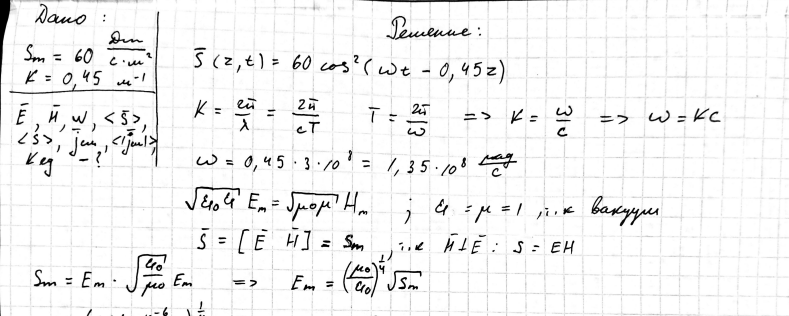 Дано :
Sm = 60 Дж/с·м²
K = 0,45 м⁻¹
Ē, H̄, w, <s̄>,
<S>, j̄см, <|j̄см|>,
Kед - ?
Решение :
S̄ (z,t) = 60 cos² (ωt - 0,45z)
K = 2π/λ = 2π/cT   T = 2π/ω => K = ω/c => ω = Kc
ω = 0,45 · 3·10⁸ = 1,35·10⁸ рад/с
√ε₀ε Em = √μ₀μ Hm ; ε = μ = 1, т.к вакуум
S̄ = [Ē H̄] = Sm , т.к H̄⊥Ē : S = EH
Sm = Em · √(ε₀/μ₀) Em => Em = (μ₀/ε₀)^(1/4) √Sm